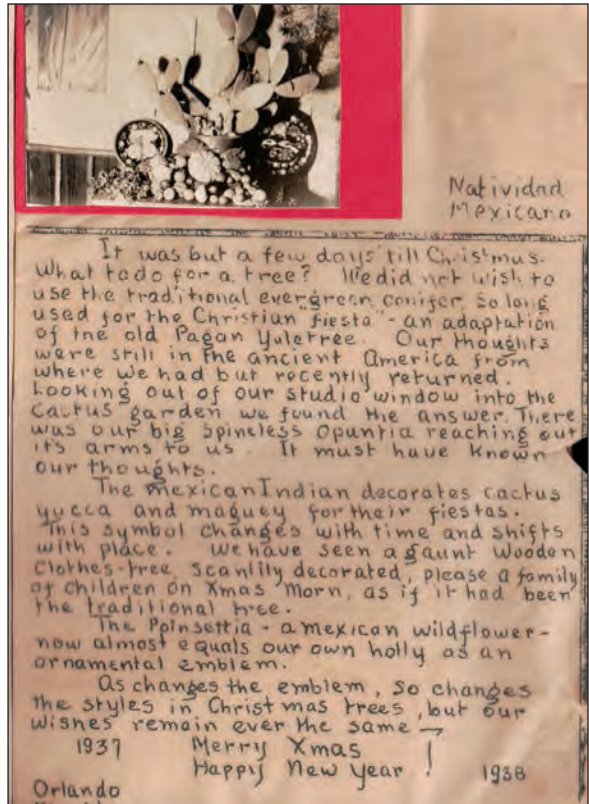 Natividad
Mexicano
It was but a few days till Christmas.
What to do for a tree? We did not wish to
use the traditional evergreen conifer, so long
used for the Christian "fiesta" - an adaptation
of the old Pagan Yuletree. Our thoughts
were still in the ancient America from
where we had but recently returned.
Looking out of our studio window into the
Cactus garden we found the answer. There
was our big spineless Opuntia reaching out
it's arms to us. It must have known
our thoughts.
The Mexican Indian decorates cactus
yucca and maguey for their fiestas.
This symbol changes with time and shifts
with place. We have seen a gaunt wooden
Clothes-tree, scantily decorated, please a family
of children on Xmas Morn, as if it had been
the traditional tree.
The Poinsettia - a mexican wildflower -
now almost equals our own holly as an
ornamental emblem.
As changes the emblem, so changes
the styles in Christmas trees, but our
wishes remain ever the same →
1937 Merry Xmas
Happy New Year ! 1938
Orlando